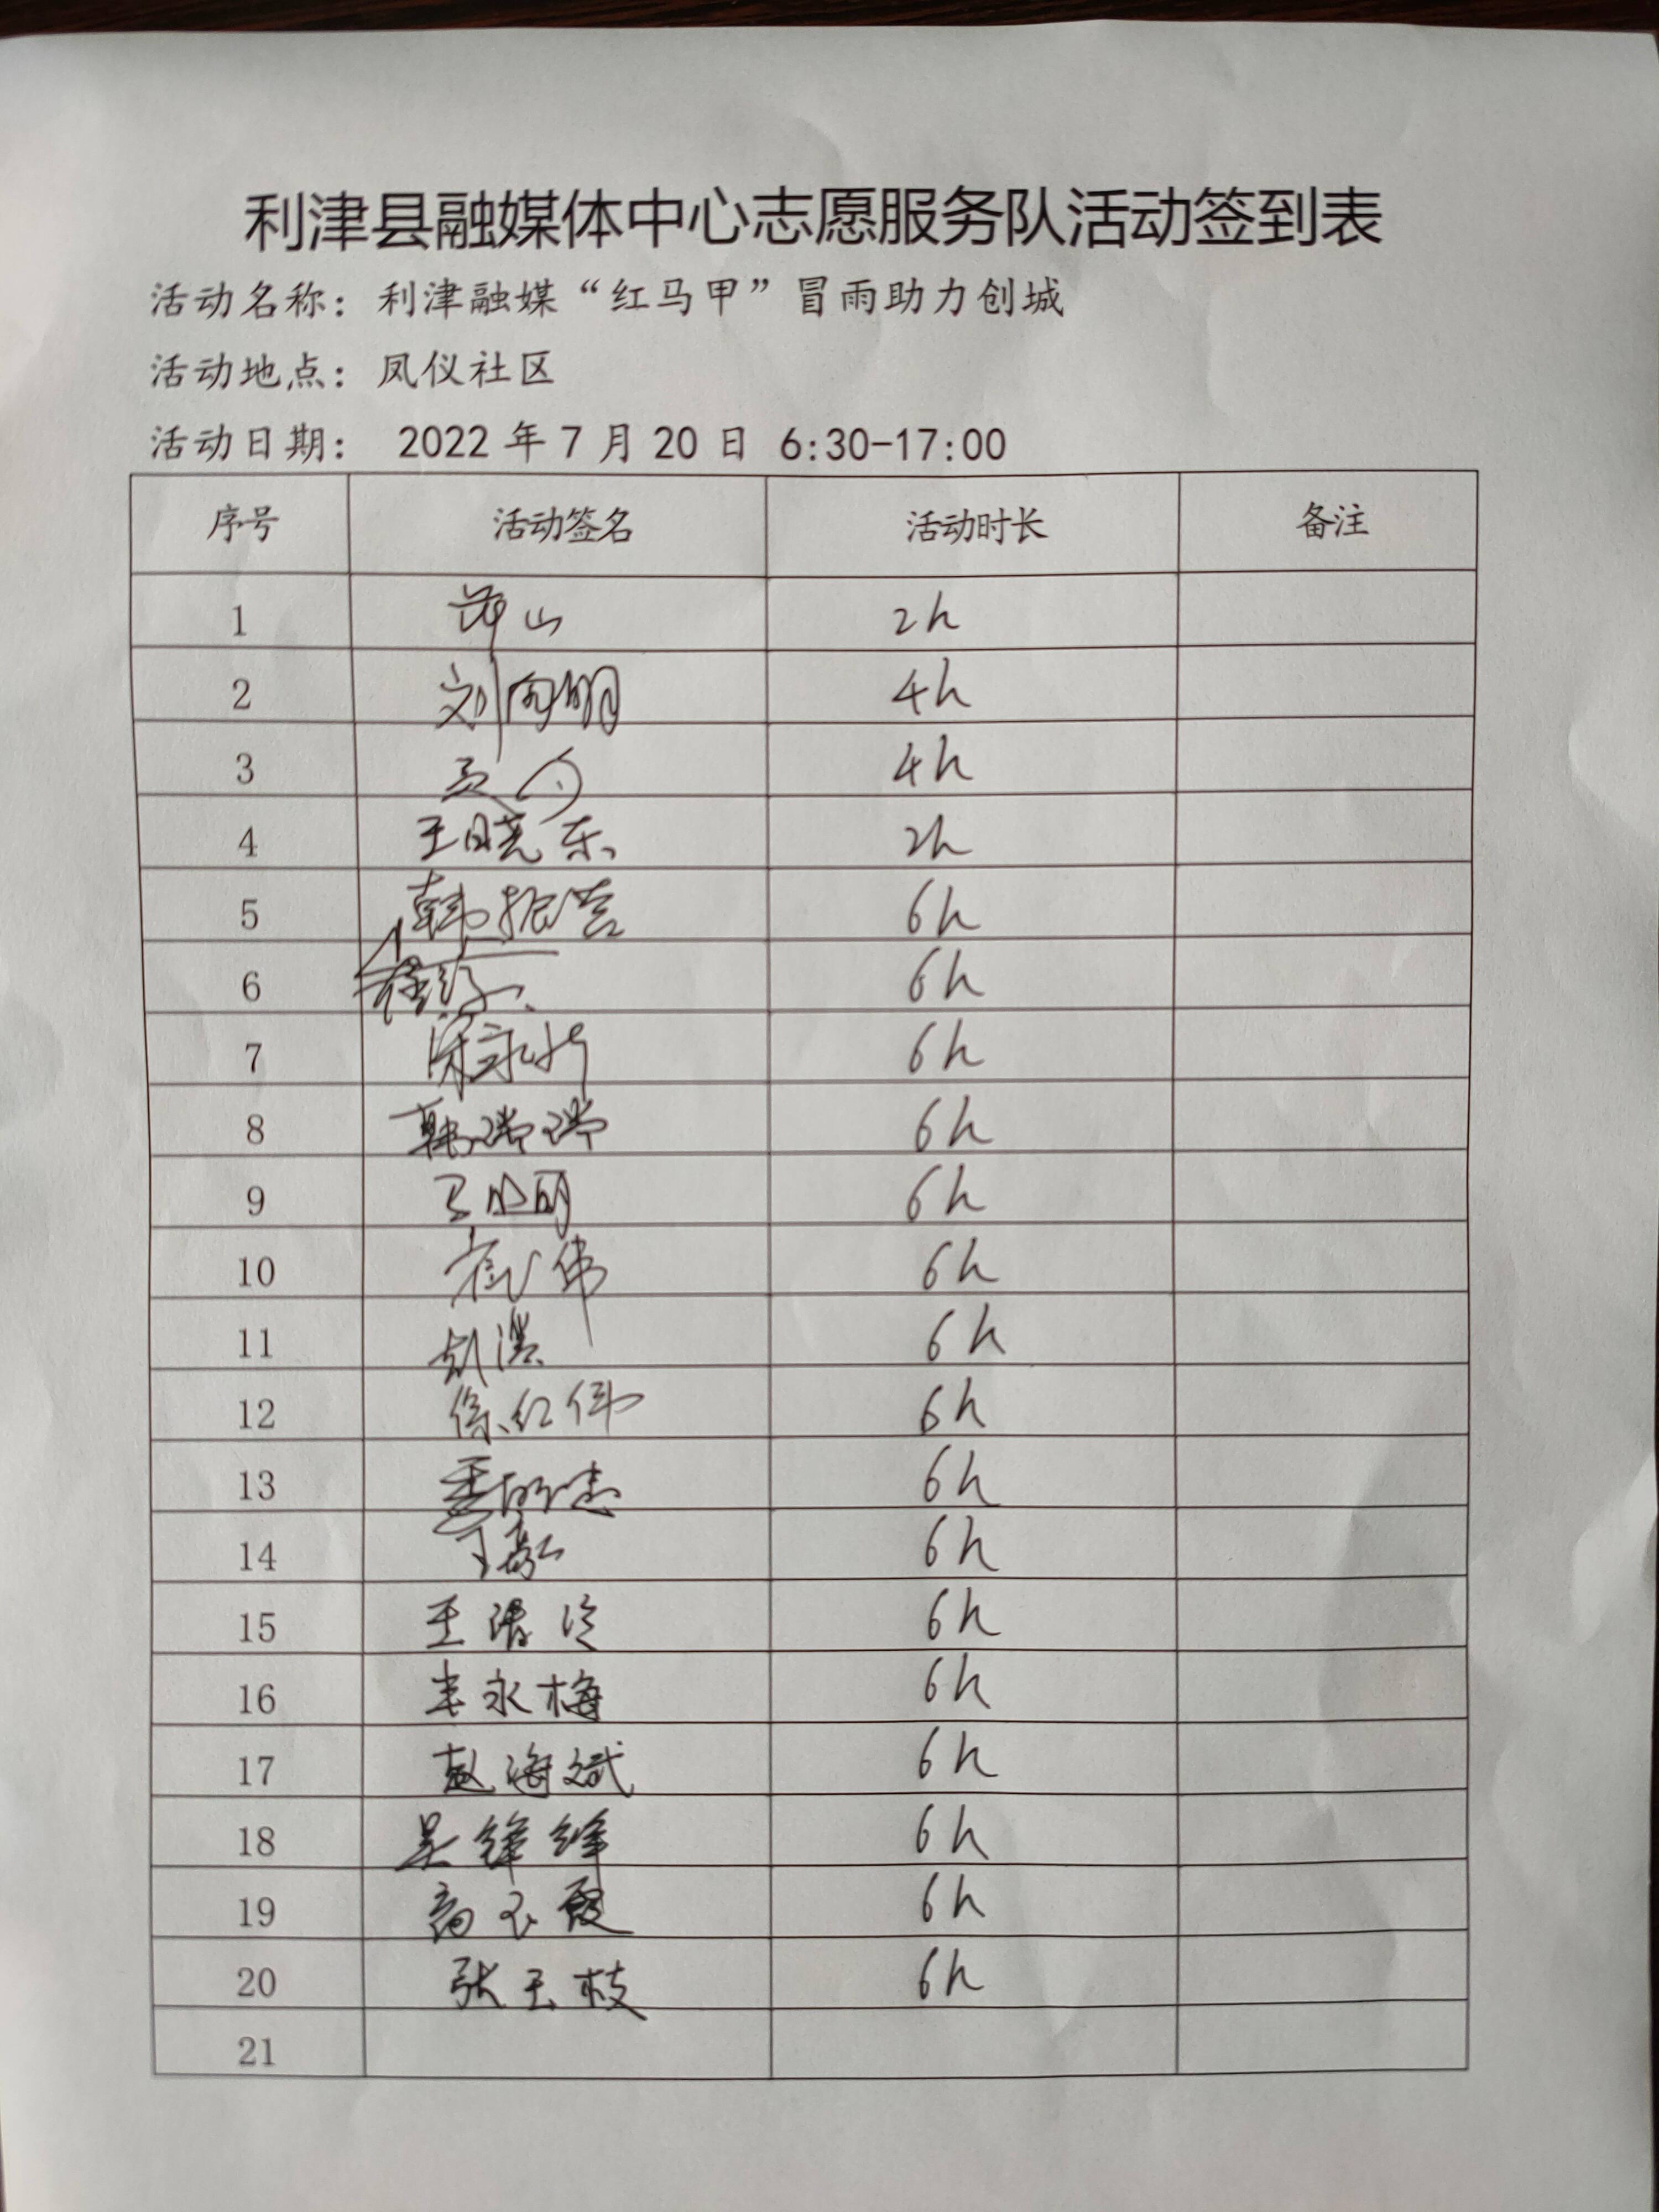 利津县融媒体中心志愿服务队活动签到表
活动名称：利津融媒“红马甲”冒雨助力创城
活动地点：凤仪社区
活动日期： 2022 年 7 月 20 日 6:30-17:00
序号 活动签名 活动时长 备注
1 山 2h
2 刘向明 4h
3 4h
4 王晓东 2h
5 韩振 6h
6 6h
7 永 6h
8 韩瑞瑞 6h
9 6h
10 伟 6h
11 刘 6h
12 徐红伟 6h
13 6h
14 6h
15 王 6h
16 永梅 6h
17 赵海斌 6h
18 吴锋锋 6h
19 高玉霞 6h
20 张玉枝 6h
21